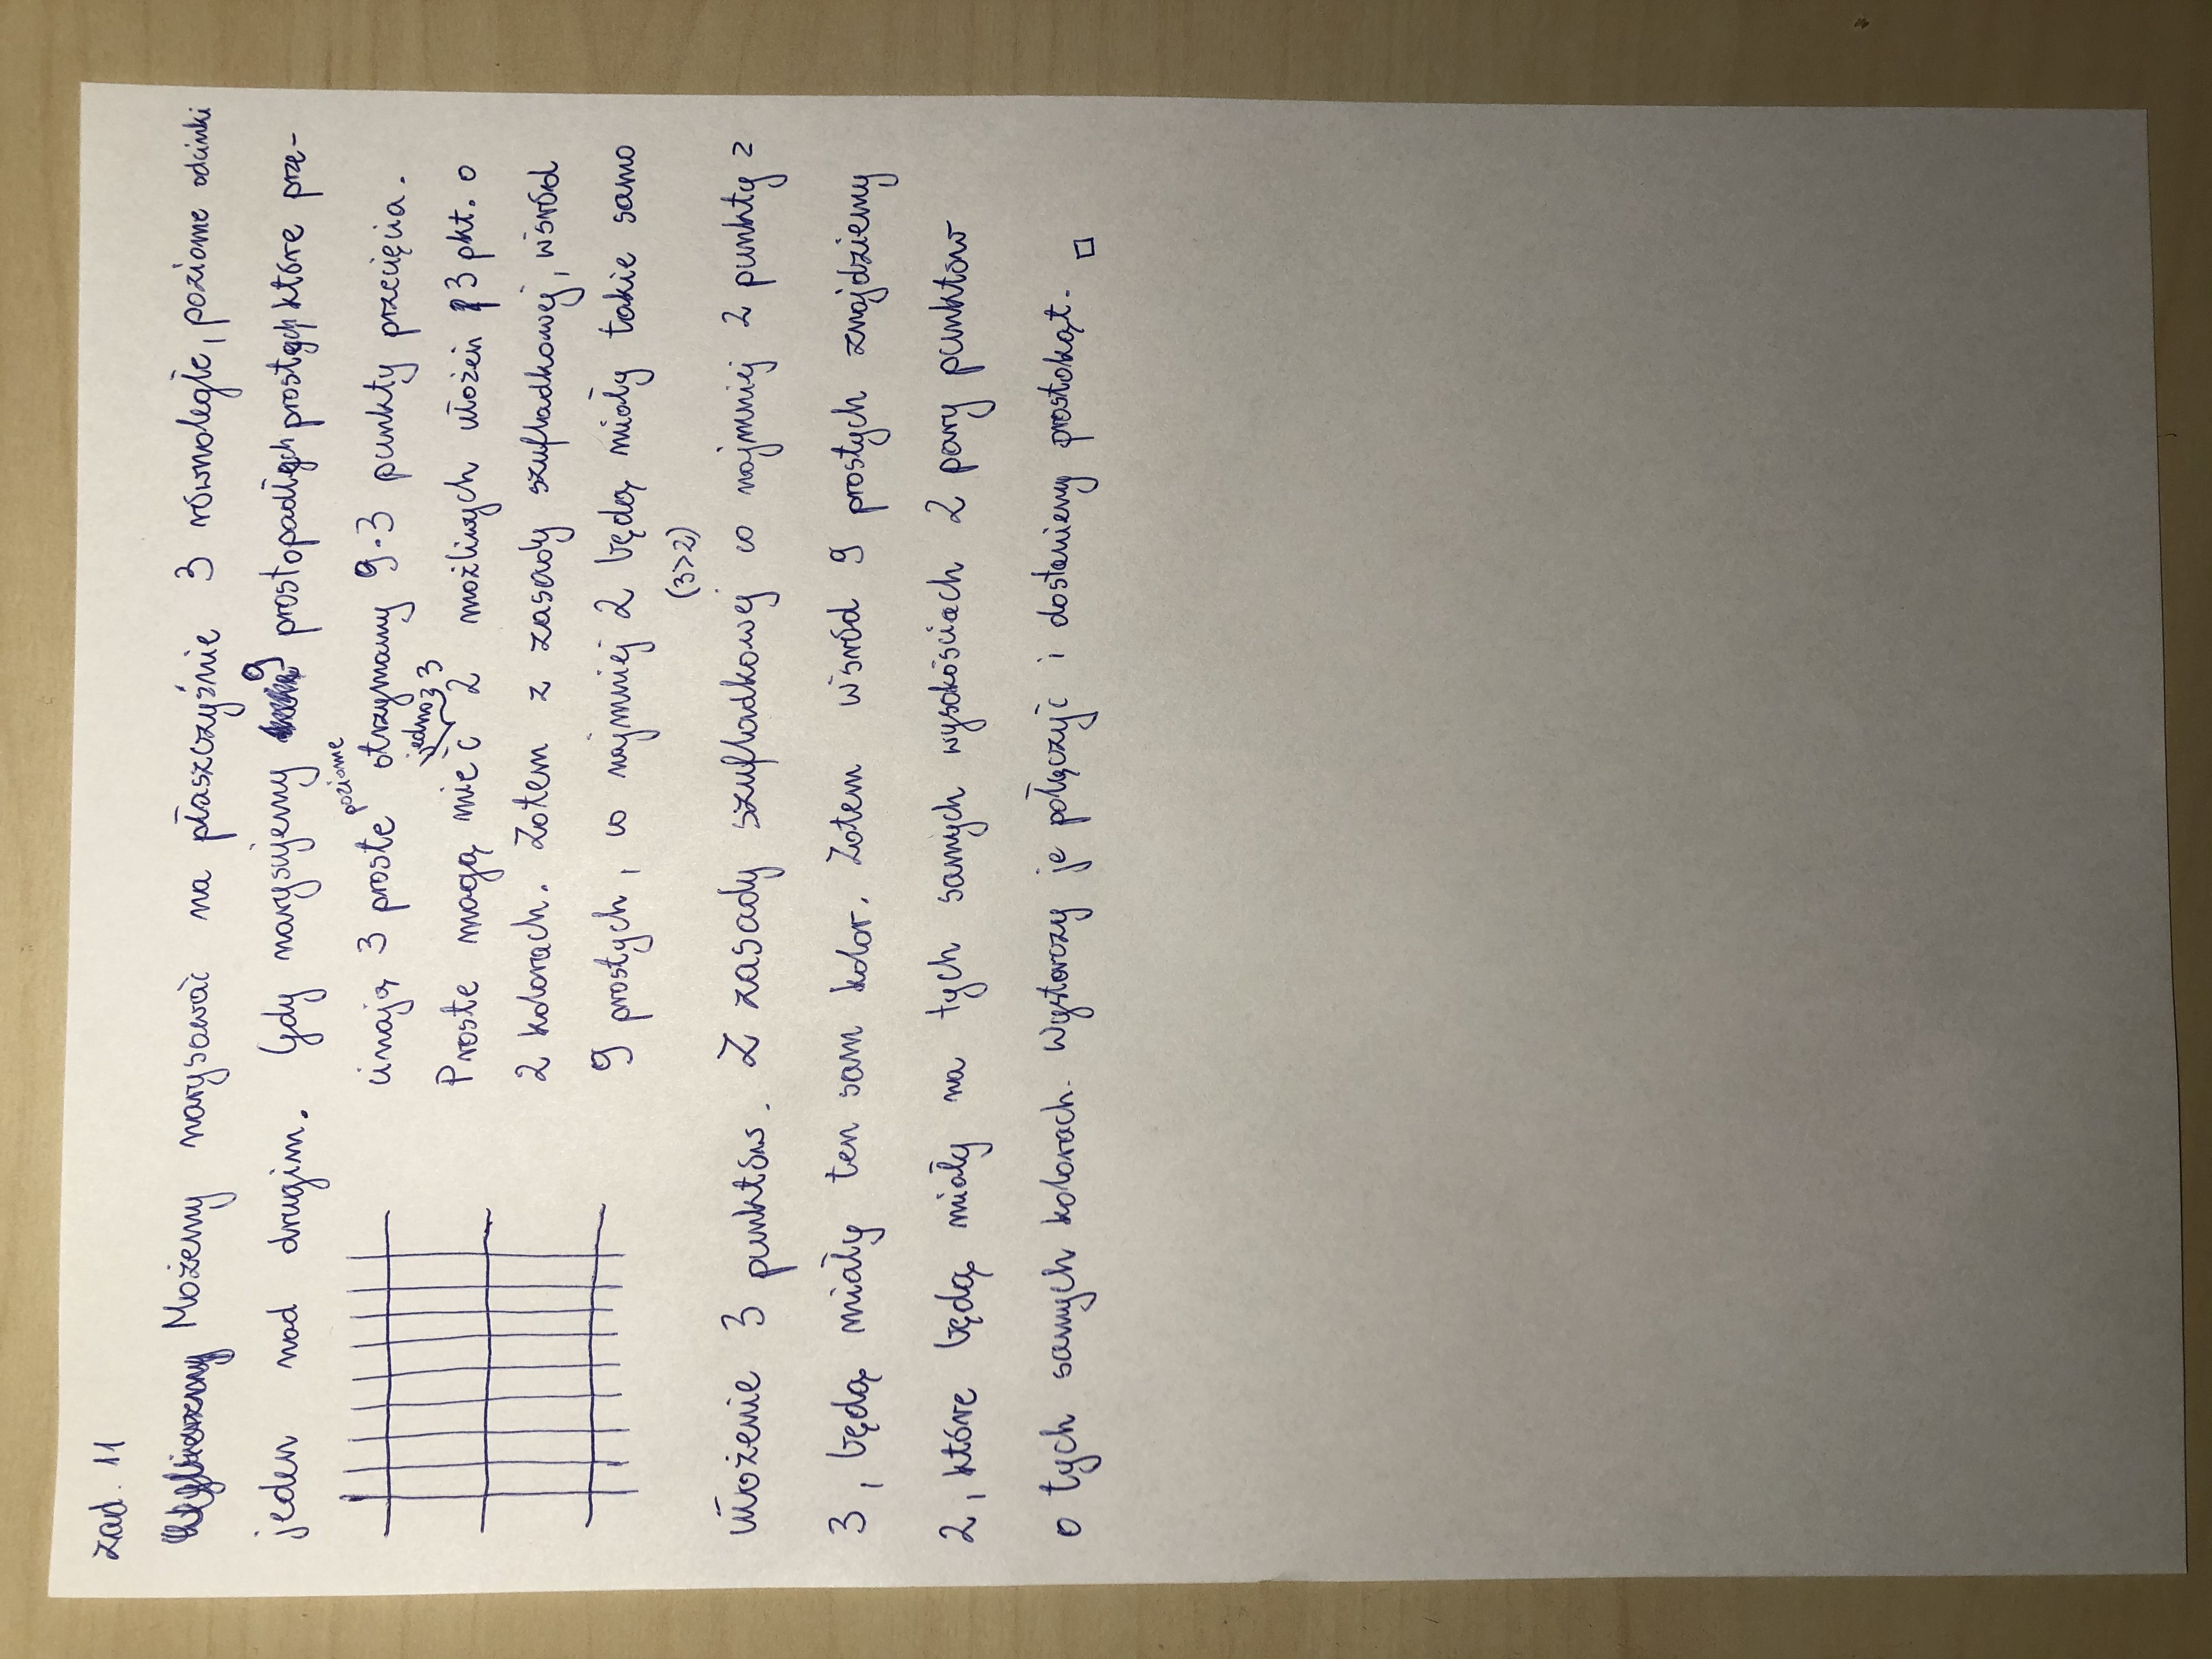 zad. 11
Możemy narysować na płaszczyźnie 3 równoległe, poziome odcinki
jeden nad drugim. Gdy narysujemy 9 prostopadłych prostych które prze-
cinają 3 proste poziome otrzymamy 9·3 punkty przecięcia.
Proste mogą mieć jedno z 2³ możliwych ułożeń 3 pkt. o
2 kolorach. Zatem z zasady szufladkowej, wśród
9 prostych, co najmniej 2 będą miały takie samo
ułożenie 3 punktów. Z zasady szufladkowej (3>2) co najmniej 2 punkty z
3, będą miały ten sam kolor. Zatem wśród 9 prostych znajdziemy
2, które będą miały na tych samych wysokościach 2 pary punktów
o tych samych kolorach. Wystarczy je połączyć i dostaniemy prostokąt. □